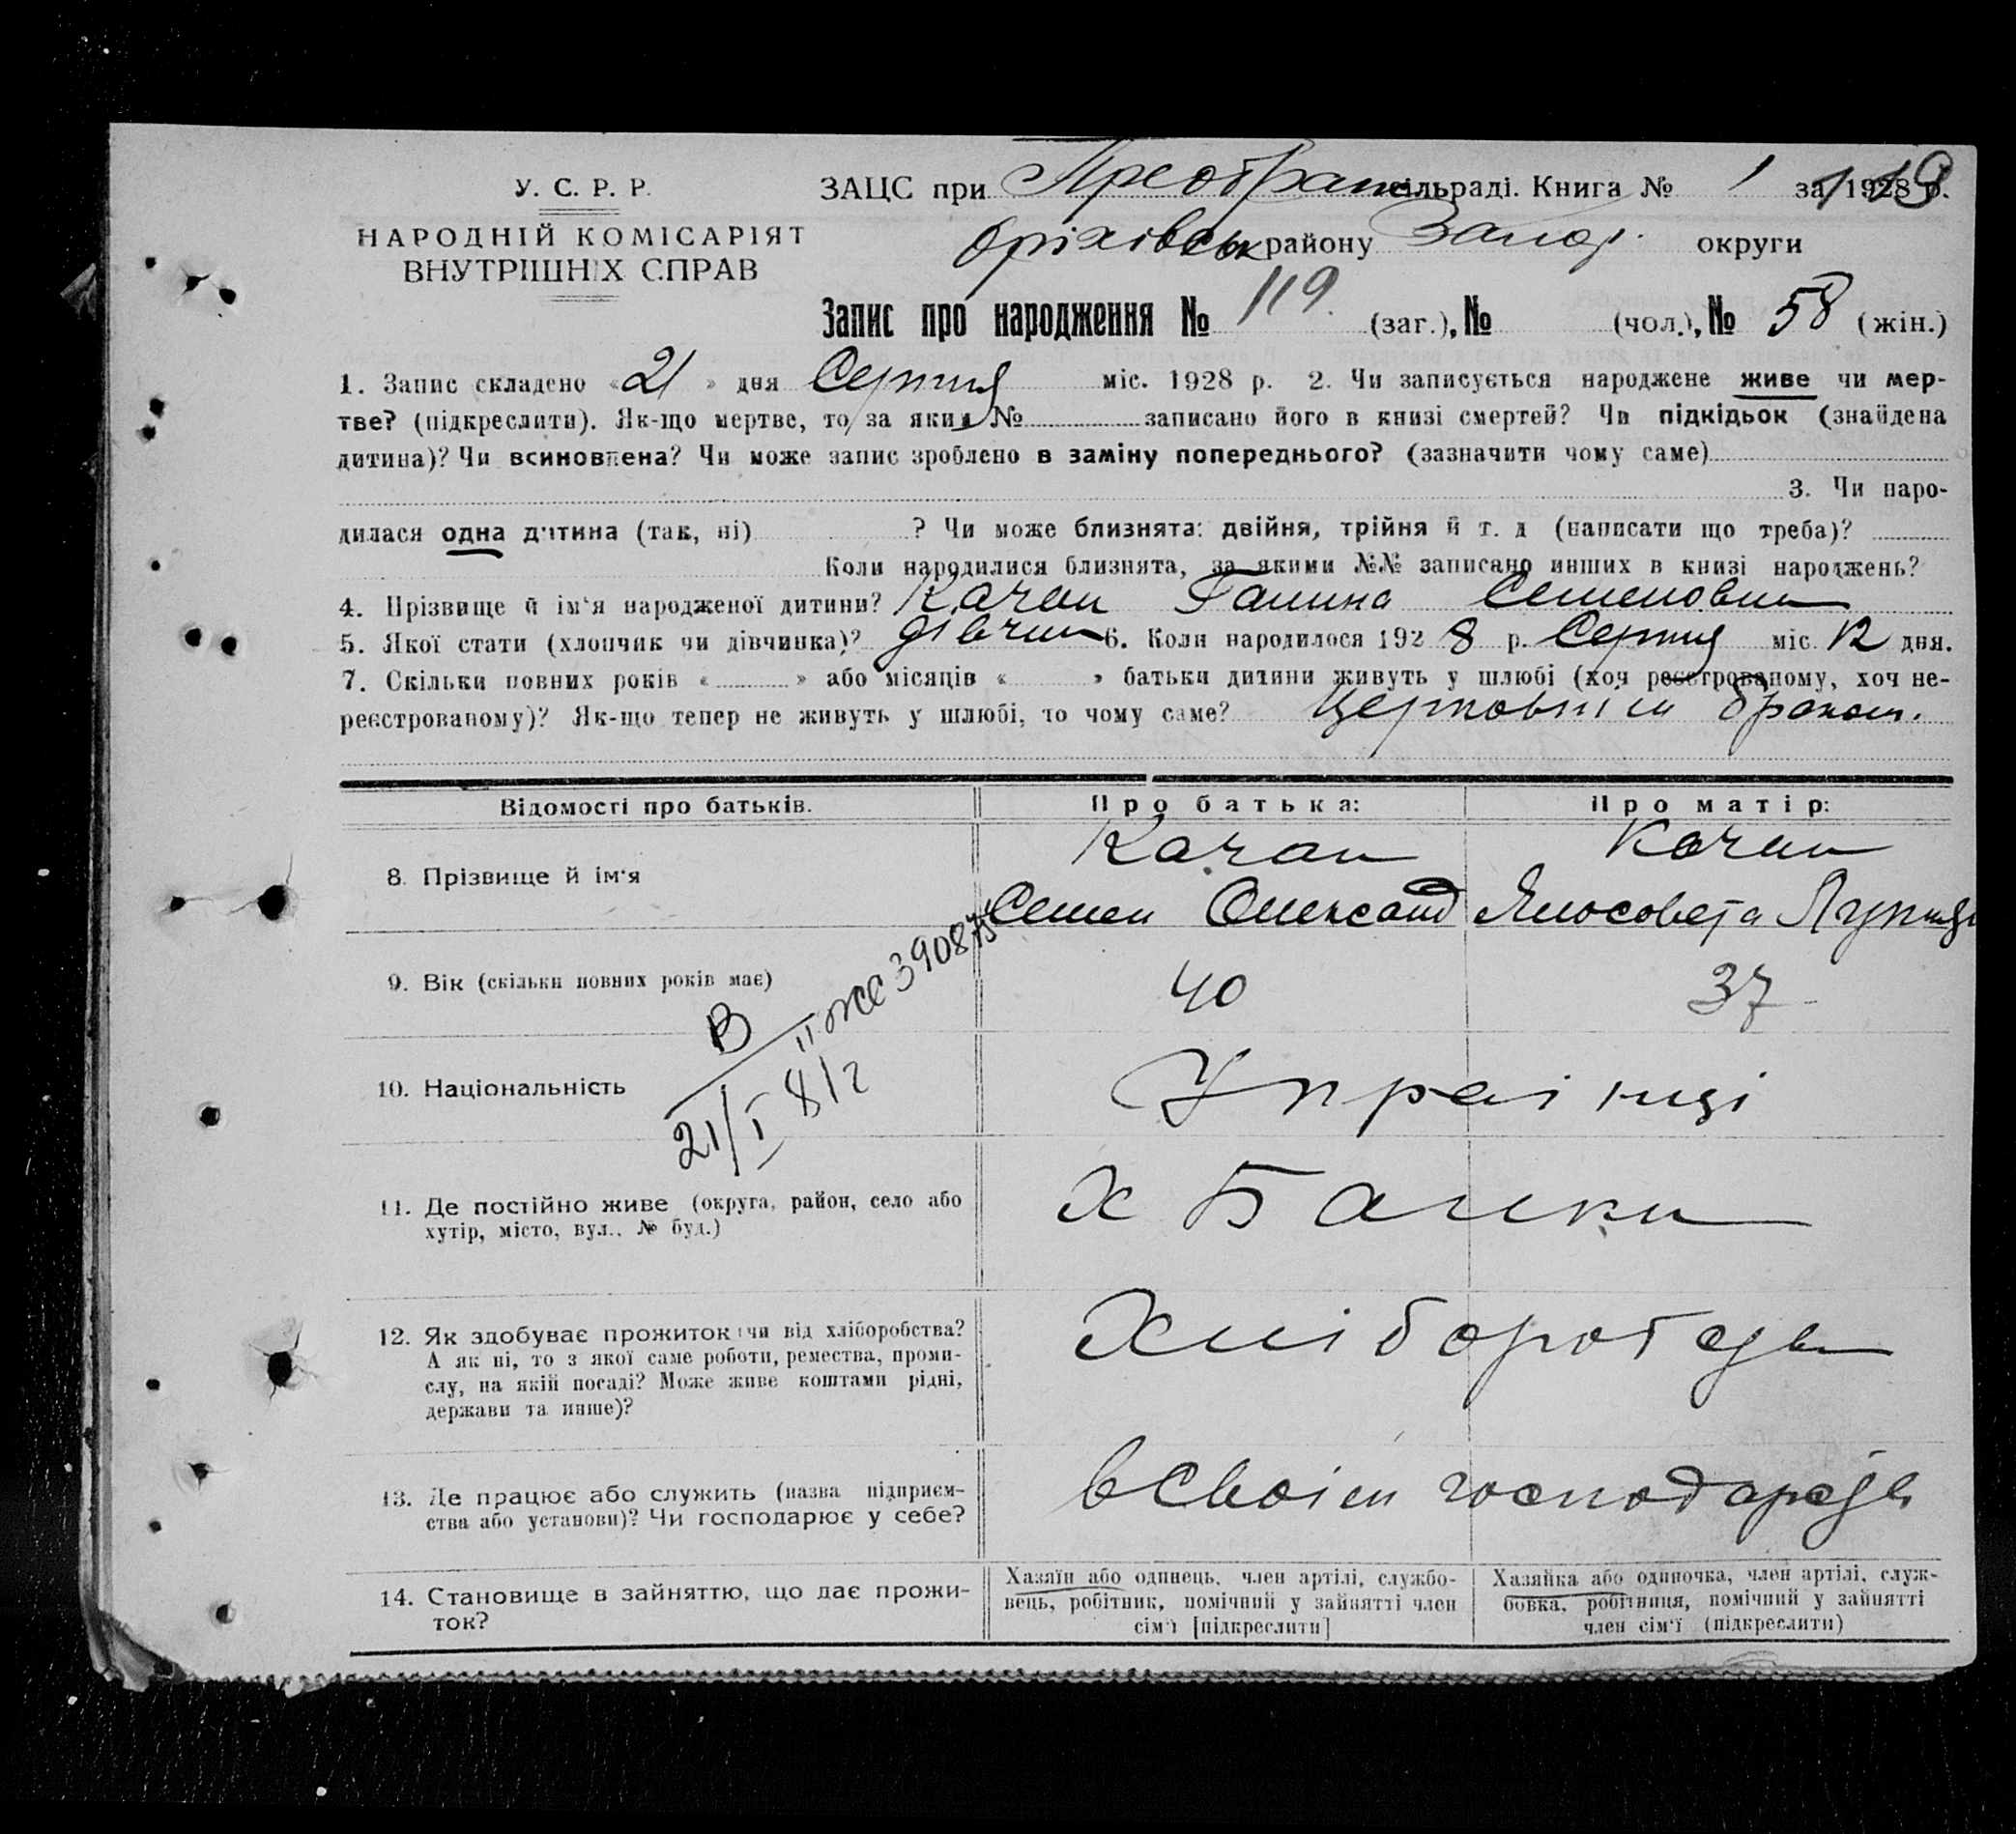 119
У. С. Р. Р. ЗАЦС при Преображен сільраді. Книга № 1 за 1928 р.
НАРОДНІЙ КОМІСАРІЯТ Оріхівськ району Запор. округи
ВНУТРІШНІХ СПРАВ
Запис про народження № 119. (заг.), № (чол.), № 58 (жін.)
1. Запис складено «21» дня Серпня міс. 1928 р. 2. Чи записується народжене живе чи мер-
тве? (підкреслити). Як-що мертве, то за яким № записано його в книзі смертей? Чи підкідьок (знайдена
дитина)? Чи всиновлена? Чи може запис зроблено в заміну попереднього? (зазначити чому саме)
3. Чи наро-
дилася одна дитина (так, ні) ? Чи може близнята: двійня, трійня й т. д (написати що треба)?
Коли народилися близнята, за якими №№ записано инших в книзі народжень?
4. Прізвище й ім'я народженої дитини? Качан Галина Семеновна
5. Якої стати (хлопчик чи дівчинка)? дівчин 6. Коли народилося 1928 р. Серпня міс. 12 дня.
7. Скільки повних років « » або місяців « » батьки дитини живуть у шлюбі (хоч реєстрованому, хоч не-
реєстрованому)? Як-що тепер не живуть у шлюбі, то чому саме? Церковнім браком.
Відомості про батьків. Про батька: Про матір:
8. Прізвище й ім'я Качан Качан
Семен Олександ Ялосовета
9. Вік (скільки повних років має) 40 37
В II же 390875
21/I 812
10. Національність Українці
11. Де постійно живе (округа, район, село або
хутір, місто, вул., № буд.) х Балки
12. Як здобуває прожиток чи від хліборобства? Хліборобсдв
А як ні, то з якої саме роботи, ремества, проми-
слу, на якій посаді? Може живе коштами рідні,
держави та инше)?
13. Де працює або служить (назва підприєм-
ства або установи)? Чи господарює у себе? в своїм господарсдв
14. Становище в зайняттю, що дає прожи-
ток?
Хазяїн або одинець, член артілі, службо-
вець, робітник, помічний у зайнятті член
сім'ї [підкреслити]
Хазяйка або одиночка, член артілі, служ-
бовка, робітниця, помічний у зайнятті
член сім'ї (підкреслити)